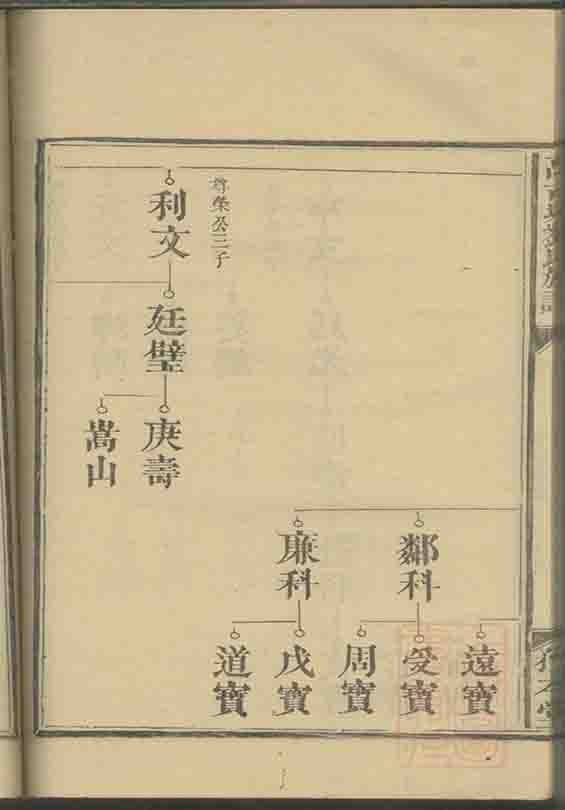 遠寶
鄰科
受寶
周寶
廉科
戊寶
道寶
尊榮公三子
利文
廷璧
庚壽
嵩山